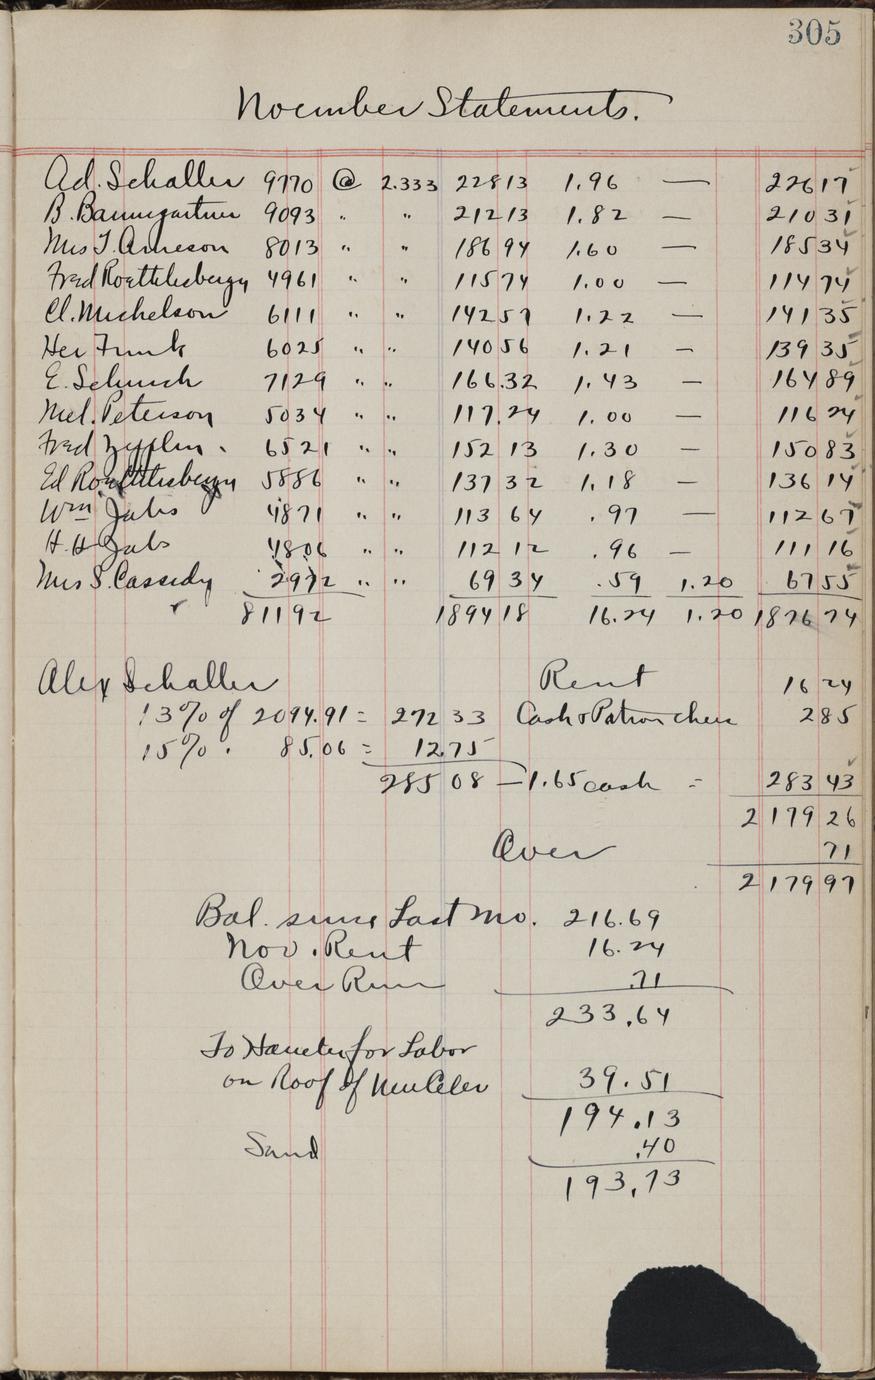 305
Nocmber Statements.
Ad. Schaller 9770 @ 2.333 228 13 1.96 — 226 17
B. Baumgartner 9093 " " 212 13 1.82 — 210 31
Mrs T. Arneson 8013 " " 186 94 1.60 — 185 34
Fred Roethlisbergy 4961 " " 115 74 1.00 — 114 74
Cl. Michelson 6111 " " 142 57 1.22 — 141 35
Her Funk 6025 " " 140 56 1.21 — 139 35
E. Schurch 7129 " " 166.32 1.43 — 164 89
Mel. Peterson 5034 " " 117.24 1.00 — 116 24
Fred Zypplin 6521 " " 152 13 1.30 — 150 83
Ed Roethlisbergy 5886 " " 137 32 1.18 — 136 14
Wm Jabs 4871 " " 113 64 .97 — 112 67
H. H Jabs 4806 " " 112 12 .96 — 111 16
Mrs S. Cassedy 2972 " " 69 34 .59 1.20 67 55
81192 1894 18 16.24 1.20 1876 74
Alex Schaller Rent 16 24
13% of 2094.91 = 272 33 Cash & Patron chees 2 85
15% " 85.06 = 12.75
285 08 — 1.65 cash = 283 43
2179 26
Over 71
2179 97
Bal. since Last Mo. 216.69
Nov. Rent 16.24
Over Run .71
233.64
To for Labor
on Roof of New Celer 39.51
194.13
Sand .40
193.73